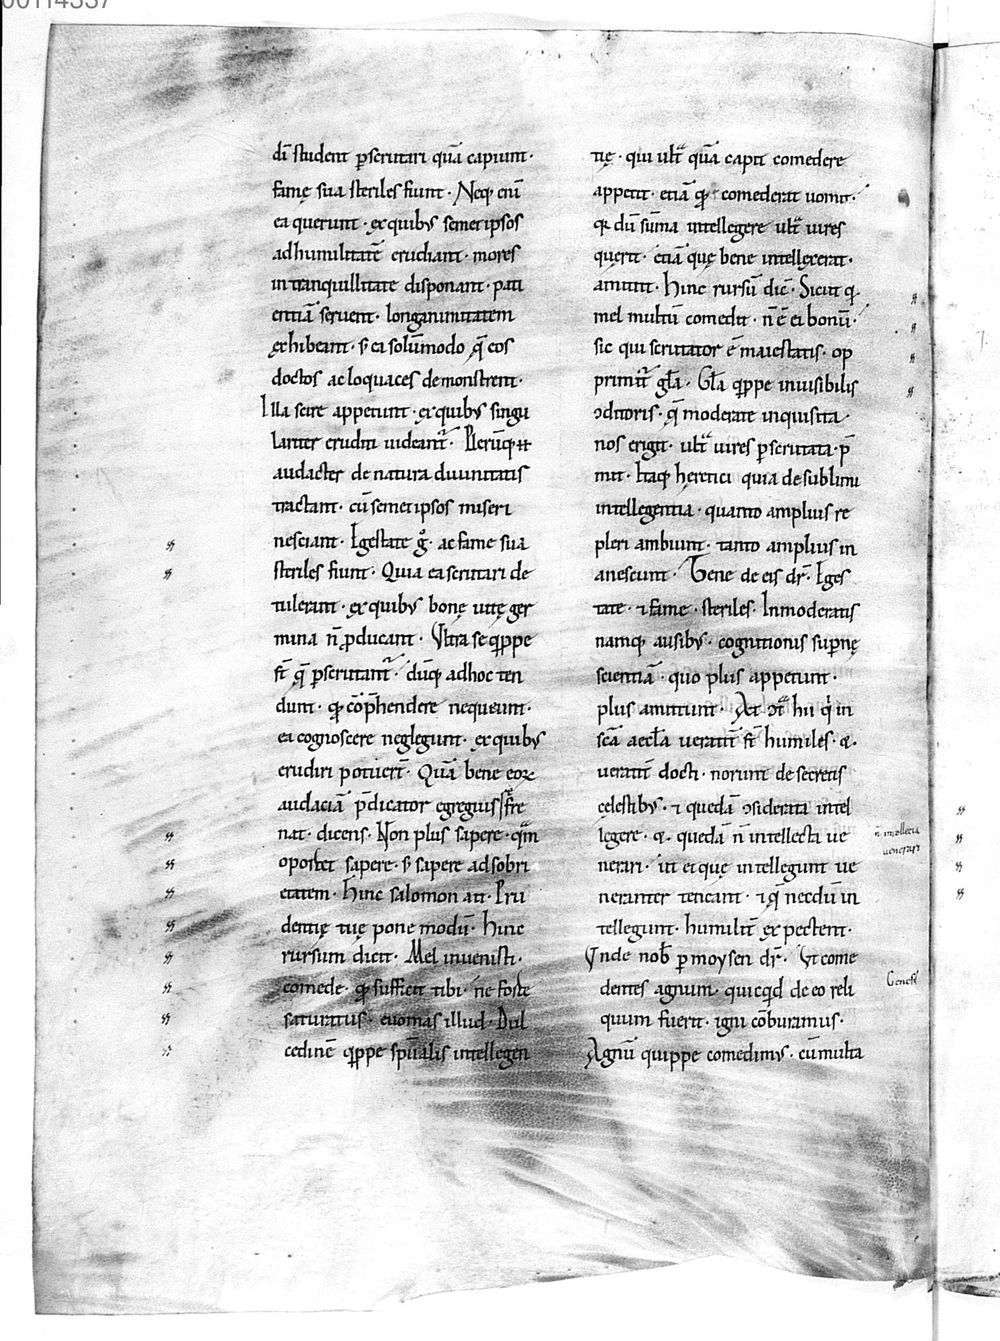 00114337
dī student pscrutari quā capiunt·
famę sua steriles fiunt· Neq; enī
ea querunt· ex quib; semetipsos
ad humilitatē erudiant· mores
in tranquillitate disponant· pati
entiā seruent· longanimitatem
exhibeant· s̄ ea solūmodo q̄ eos
doctos ac loquaces demonstrent·
Illa scire appetunt· ex quib; singu
lariter eruditi uideant᷑· Plerūq; ⁊
audacter de natura diuinitatis
tractant· cū semetipsos miseri
nesciant· Egestate g° ac fame sua
steriles fiunt· Quia ea scrutari de
siderant· ex quib; bonę uitę ger
mina n̄ ꝓducant· Vltra se qppe
st̄ q̄ pscrutant᷑· dūq; adhoc ten
dunt· qđ cōp̄hendere nequeunt·
ea cognoscere neglegunt· ex quib;
erudiri potuer̄t· Quā bene eoꝝ
audaciā p̄dicator egregius refre
nat· dicens· Non plus sapere· quā
oportet sapere· s̄ sapere ad sobri
etatem· Hinc salomon ait· Pru
dentię tuę pone modū· Hinc
rursum dicit· Mel inuenisti·
comede· qđ sufficit tibi· ne forte
saturatus· euomas illud· Dul
cedinē qppe sp̄ualis intellegen
tię· qui ult᷑ quā capit comedere
appetit· etiā qđ comederat uomit·
q̄ dū sūma intellegere ult᷑ uires
querit· etiā quę bene intellexerat·
amittit· Hinc rursū dic̄· Sicut q
mel multū comedit· n̄ ē ei bonū·
sic qui scrutator ē maiestatis· op
primit᷑ gła· Gła qppe inuisibilis
ɔditoris· q̄ moderate inquisita·
nos erigit· ult᷑ uires pscrutata· p̄
mit· Itaq; heretici quia de sublimi
intellegentia· quanto amplius re
pleri ambiunt· tanto amplius in
anescunt· Bene de eis dr̄· Eges
tate· ⁊ fame· steriles· Inmoderatis
namq; ausib;· cognitionis supnę
scientiā· quo plus appetunt·
plus amittunt· At ɔt᷑ hii qi in
scā aeccła ueracit᷑ st̄ humiles· &·
ueracit᷑ docti· norunt de secretis
celestib;· ⁊ quedā ɔsiderata intel
legere· &· quedā n̄ intellecta ue
nerari· ut et que intellegunt ue
neranter teneant· ⁊ q̄ necdū in
tellegunt· humilit᷑ expectent·
Vnde nob̄ p moysen dr̄· Vt come
dentes agnum· quicqd de eo reli
quum fuerit· igni cōburamus·
Agnū quippe comedimus· cū multa
n̄ intellecta
uenerari
Genesis